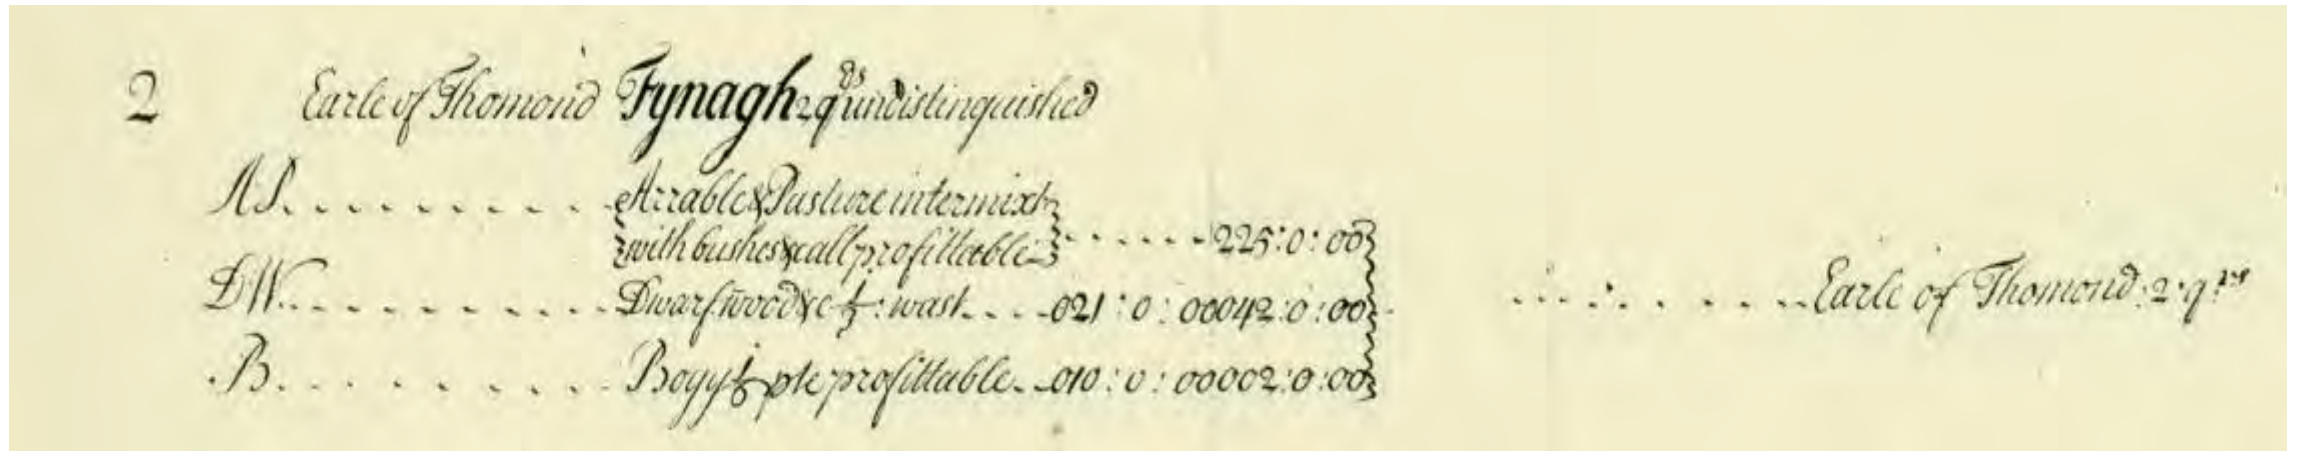 2 Earle of Thomond Fynagh 2 qrs undistinguished
AP. . . . . . . . . . Arrable & Pasture intermixt
with bushes & all profittable . . . . . . 225:0:00
DW. . . . . . . . . . Dwarf wood &c wast . . . . 021:0:00 042:0:00 . . . . . . . . Earle of Thomond:2:qrs
.B. . . . . . . . . . Bogy pte profittable . . 010:0:00 002:0:00